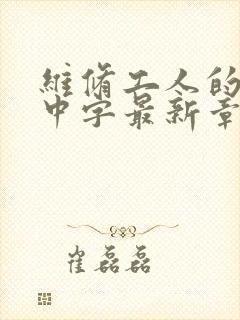 維修工人的
中字最新章
崔磊磊